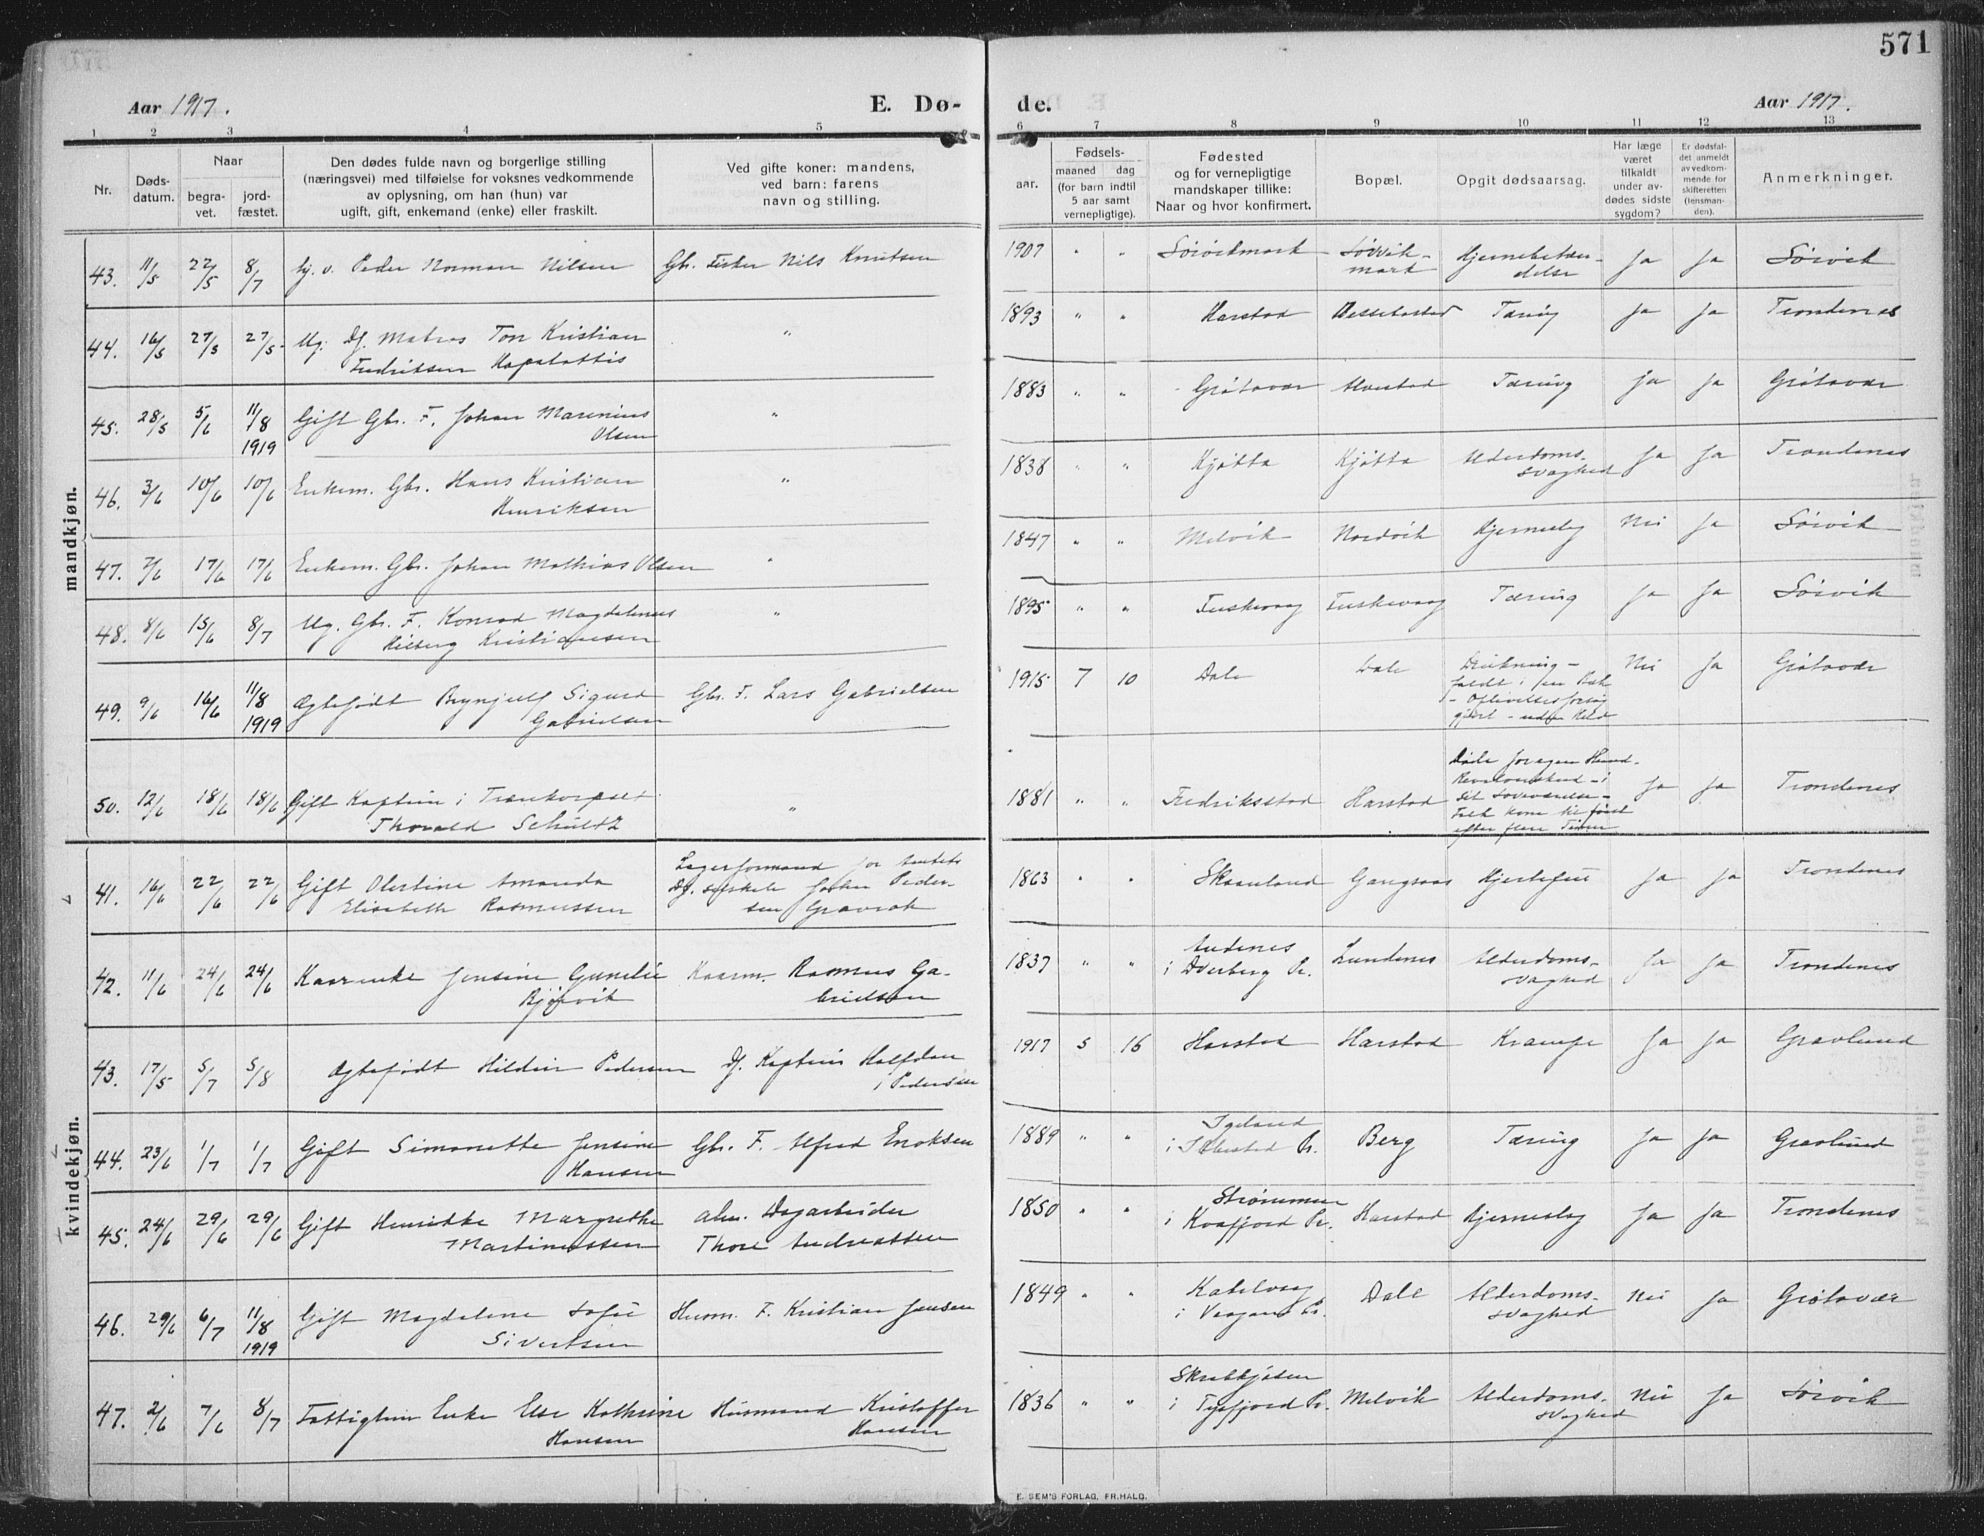 571
Aar 1917.
E. Dø-
de.
Aar 1917.
1 2 3 4 5 6 7 8 9 10 11 12 13
Nr.
Døds-
datum.
Naar
begra-
vet.
jord-
fæstet.
Den dødes fulde navn og borgerlige stilling
(næringsvei) med tilføielse for voksnes vedkommende
av oplysning, om han (hun) var
ugift, gift, enkemand (enke) eller fraskilt.
Ved gifte koner: mandens,
ved barn: farens
navn og stilling.
Fødsels-
aar.
maaned dag
(for barn indtil
5 aar samt
vernepligtige).
Fødested
og for vernepligtige
mandskaper tillike:
Naar og hvor konfirmert.
Bopæl.
Opgit dødsaarsag.
Har læge
været
tilkaldt
under av-
dødes sidste
sygdom?
Er dødsfal-
det anmeldt
av vedkom-
mende for
skifteretten
(lensman-
den).
Anmerkninger.
mandkjøn.
43. 11/5 22/5 8/7 Peder Norman Nilsen Gbr. Fisker Nils Knutsen 1907 " " Sørvikmark Sørvik-
mark Hjernebetæn-
delse Ja Ja Sørvik
44. 16/5 27/5 27/5 Ug. Df. Matros Kristian
Fredriksen 1893 " " Harstad Tæring Ja Ja Trondenes
45. 28/5 5/6 11/8
1919 Gift Gbr. F. Johan Marenius
Olsen " 1883 " " Grøtavær Alvestad Tæring Ja Ja Grøtavær
46. 3/6 10/6 10/6 Enkem. Gbr. Hans Kristian
Henriksen " 1838 " " Kjøtta Kjøtta Alderdoms-
svaghed Ja Ja Trondenes
47. 7/6 17/6 17/6 Enkem. Gbr. Johan Mathias Olsen " 1847 " " Melvik Nordvik Hjerneslag Nei Ja Sørvik
48. 8/6 15/6 8/7 Ug. Gbr. F. Konrad Magdalenus
Kristiansen " 1895 " " Fuskevaag Fuskevaag Tæring Ja Ja Sørvik
49. 9/6 16/6 11/8
1919 Ægtefødt Brynjulf Sigurd
Gabrielsen Gbr. F. Lars Gabrielsen 1915 7 10 Dale Dale Drukning -
faldt i en Bæk
- Oplivelsesforsøg
gjort - uden Held Nei Ja Grøtavær
50. 12/6 18/6 18/6 Gift Kaptein i Trænkorpset
Thorvald Schultz " 1881 " " Fredriksstad Harstad Døde for egen Haand-
Revolverskud - i
sit Soveværelse -
Folk kom til først
efter flere Timer Ja Ja Trondenes
kvindekjøn.
41. 16/6 22/6 22/6 Gift Olertine Amanda
Elisabeth Rasmussen Lagerformand for Amtets
Df. selskab Johan Peder-
sen Gravrok 1863 " " Skaanland Gangsaas Hjertefeil Ja Ja Trondenes
42. 11/6 24/6 24/6 Kaarenke Jensine Gunelie
Bjørvik Kaarm. Rasmus Ga-
brielsen 1837 " " Andenes
i Dverberg Pr. Lundenes Alderdoms-
svaghed Ja Ja Trondenes
43. 17/5 5/7 5/8 Ægtefødt Hildur Pedersen Df. Kaptein Halfdan
Pedersen 1917 5 16 Harstad Harstad Krampe Ja Ja Gravlund
44. 23/6 1/7 1/7 Gift Simonette Jensine
Hansen Gbr. F. Alfred Enoksen 1889 " " i Ibbestad Pr. Berg Tæring Ja Ja Gravlund
45. 24/6 29/6 29/6 Gift Henrikke Margrethe
Martinussen alm. Dagarbeider
Thore Andreassen 1850 " " Strømmen
i Kvæfjord Pr. Harstad Hjerneslag Ja Ja Trondenes
46. 29/6 6/7 11/8
1919 Gift Magdalene Sofie
Sivertsen Husm. F. Kristian Jensen 1849 " " Kabelvaag
i Vaagan Pr. Dale Alderdoms-
svaghed Nei Ja Grøtavær
47. 2/6 7/6 8/7 Fattiglem Enke Else Kathrine
Hansen Husmand Kristoffer
Hansen 1836 " " i Tysfjord Pr. Melvik Alderdoms-
svaghed Nei Ja Sørvik
E. SEM'S FORLAG, FR.HALD.